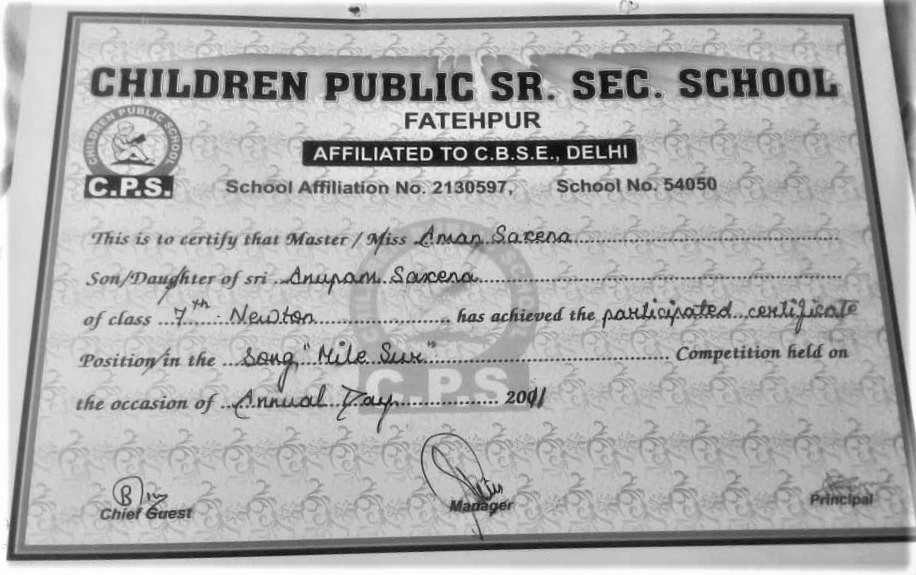 CHILDREN PUBLIC SR. SEC. SCHOOL
FATEHPUR
AFFILIATED TO C.B.S.E., DELHI
School Affiliation No. 2130597, School No. 54050
CHILDREN PUBLIC SCHOOL
C.P.S.
This is to certify that Master / Miss Aman Saxena
Son/Daughter of sri Anupam Saxena
of class 7th Newton has achieved the participated certificate
Position in the Song "Mile Sur" Competition held on
the occasion of Annual Day 2011
SCHOOL
C.P.S
Chief Guest
Manager
Principal